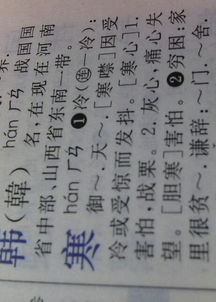 韩(韓) hán ㄏㄢ 战国国
名,在现在河南
省中部、山西省东南一带。
寒 hán ㄏㄢ ❶冷(连—冷):
御~.天~.[寒噤]因受
冷或受惊而发抖。[寒心]1.
害怕,战栗。2.灰心,痛心失
望。[胆寒]害怕。❷穷困:家
里很贫~.谦辞:~门.~舍.